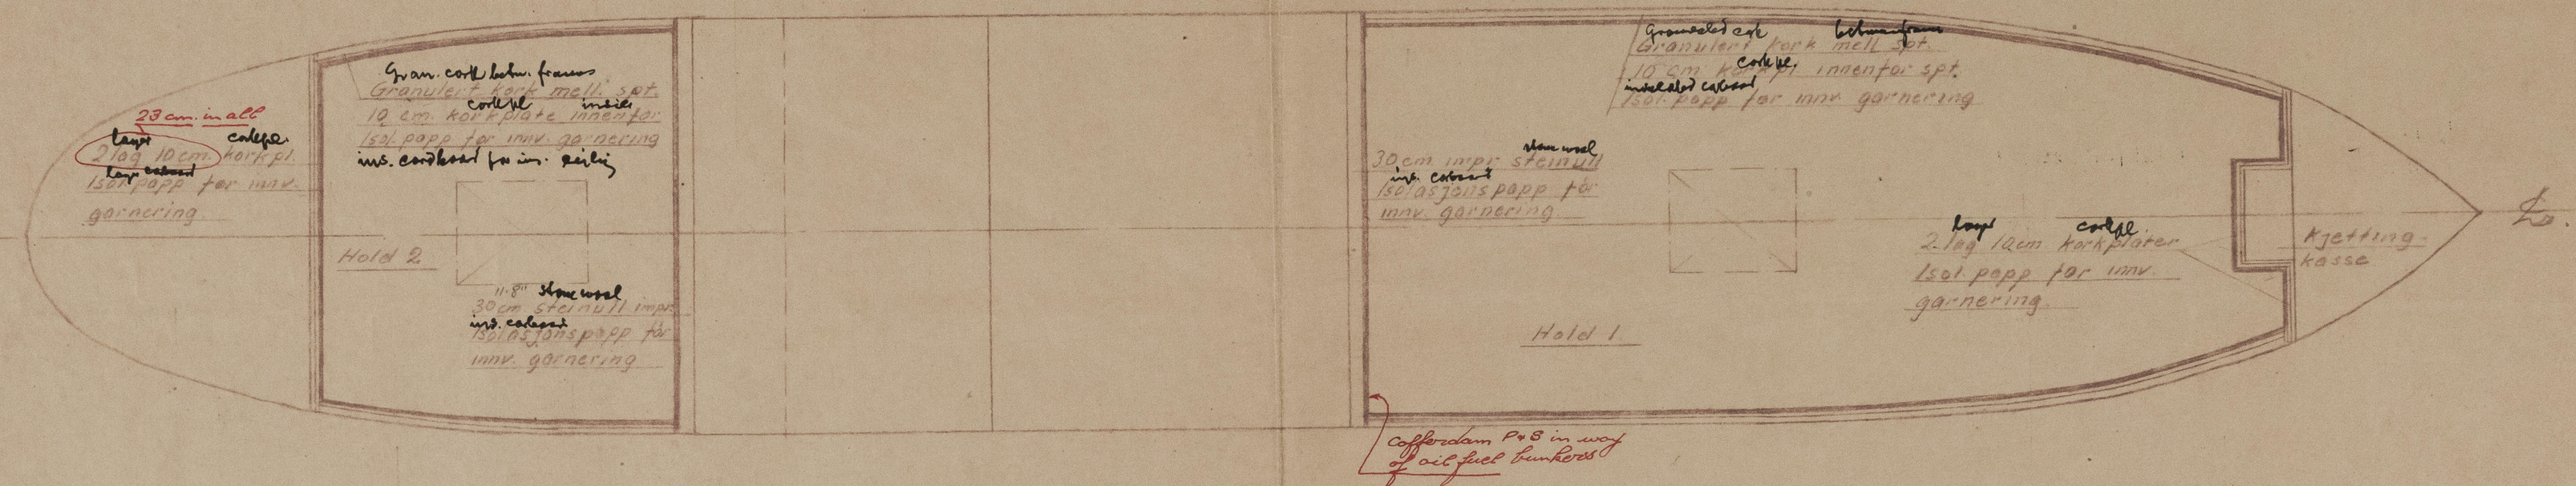 23 cm. in all
layer corkpl.
2 lag 10 cm. korkpl.
Isol. papp før innv.
garnering
Gran. cork betw. frames
Granulert kork mell. spt.
corkpl inside
10 cm. korkplate innenfor
Isol. papp før innv. garnering
ins. cardboard for inv. ceiling
Hold 2
11.8" stone wool
30 cm. steinull impr.
ins. carboard
Isolasjonspapp før
innv. garnering
Granulated cork between frames
Granulert kork mell spt.
corkpl.
10 cm korkpl. innenfor spt.
Isol. papp før innv garnering
stone wool
30 cm. impr. steinull
ins. carboard
Isolasjonspapp før
innv. garnering
corkpl
2. lag 10cm korkplater
Isol. papp før innv.
garnering
Kjetting-
kasse
Hold 1.
Cofferdam P & S in way
of oil fuel bunkers